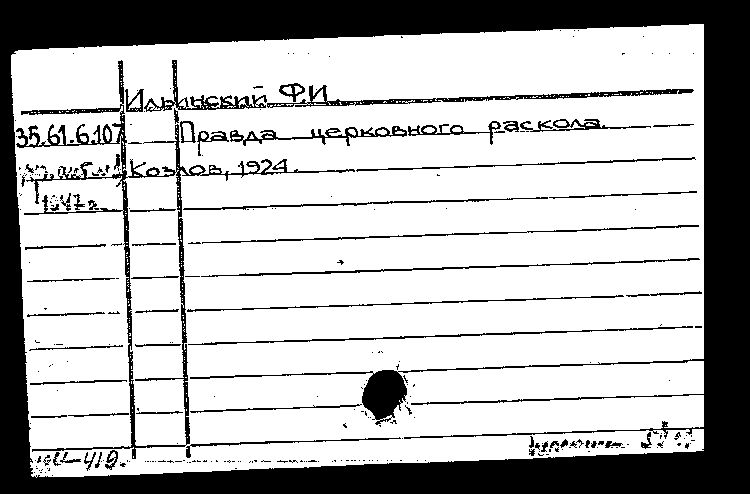 Ильинский Ф.И.
35.61.6.107 Правда церковного раскола.
Козлов, 1924.
1947 г.